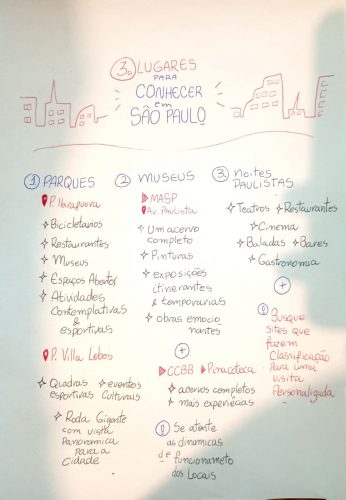 3. LUGARES
PARA
CONHECER
em
SÃO PAULO
1 PARQUES
P. Ibirapuera
Bicicletários
Restaurantes
Museus
Espaços Abertos
Atividades
Contemplativas &
esportivas
P. Villa Lobos
Quadras
esportivas
eventos
Culturais
Roda Gigante
com vista
Panoramica
para a
cidade
2 MUSEUS
MASP
Av. Paulista
Um acervo
completo
Pinturas
exposições
itinerantes
& temporarias
obras emocio
nantes
+
CCBB Pinacoteca
acervos completos
+ mais experiêcias
Se atente
as dinamicas
de funcionameto
dos Locais
3. NOITES
PAULISTAS
Teatros Restaurantes
Cinema
Baladas Bares
Gastronomia
+
Busque
sites que
fazem
Classificação
Para uma
visita
Personalizada